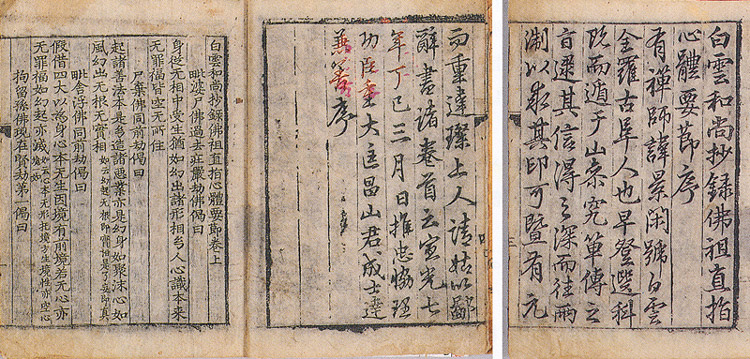 白雲和尚抄錄佛祖直指
心體要節序
有禪師諱景閑號白雲
全羅古阜人也早登選科
既而遁于山宗究單傳之
旨其信得之深而往兩
淛以求其印可暨有元
而重違璨上人請姑以鄙
辭書諸卷首云宣光七
年丁巳三月日推忠協理
功臣重大匡昌山君成士達
序
白雲和尚抄錄佛祖直指心體要節卷上
毗婆尸佛過去莊嚴劫佛偈曰
身從无相中受生猶如幻出諸形相幻人心識本來
无罪福皆空无所住
尸棄佛同前劫偈曰
起諸善法本是幻造諸惡業亦是幻身如聚沫心如
風幻出无根无實相
毗舍浮佛同前劫偈曰
假借四大以爲身心本无生因境有前境若无心亦
无罪福如幻起亦滅如云心本无形托境方生境性亦空心境如如
拘留孫佛現在賢劫第一偈曰